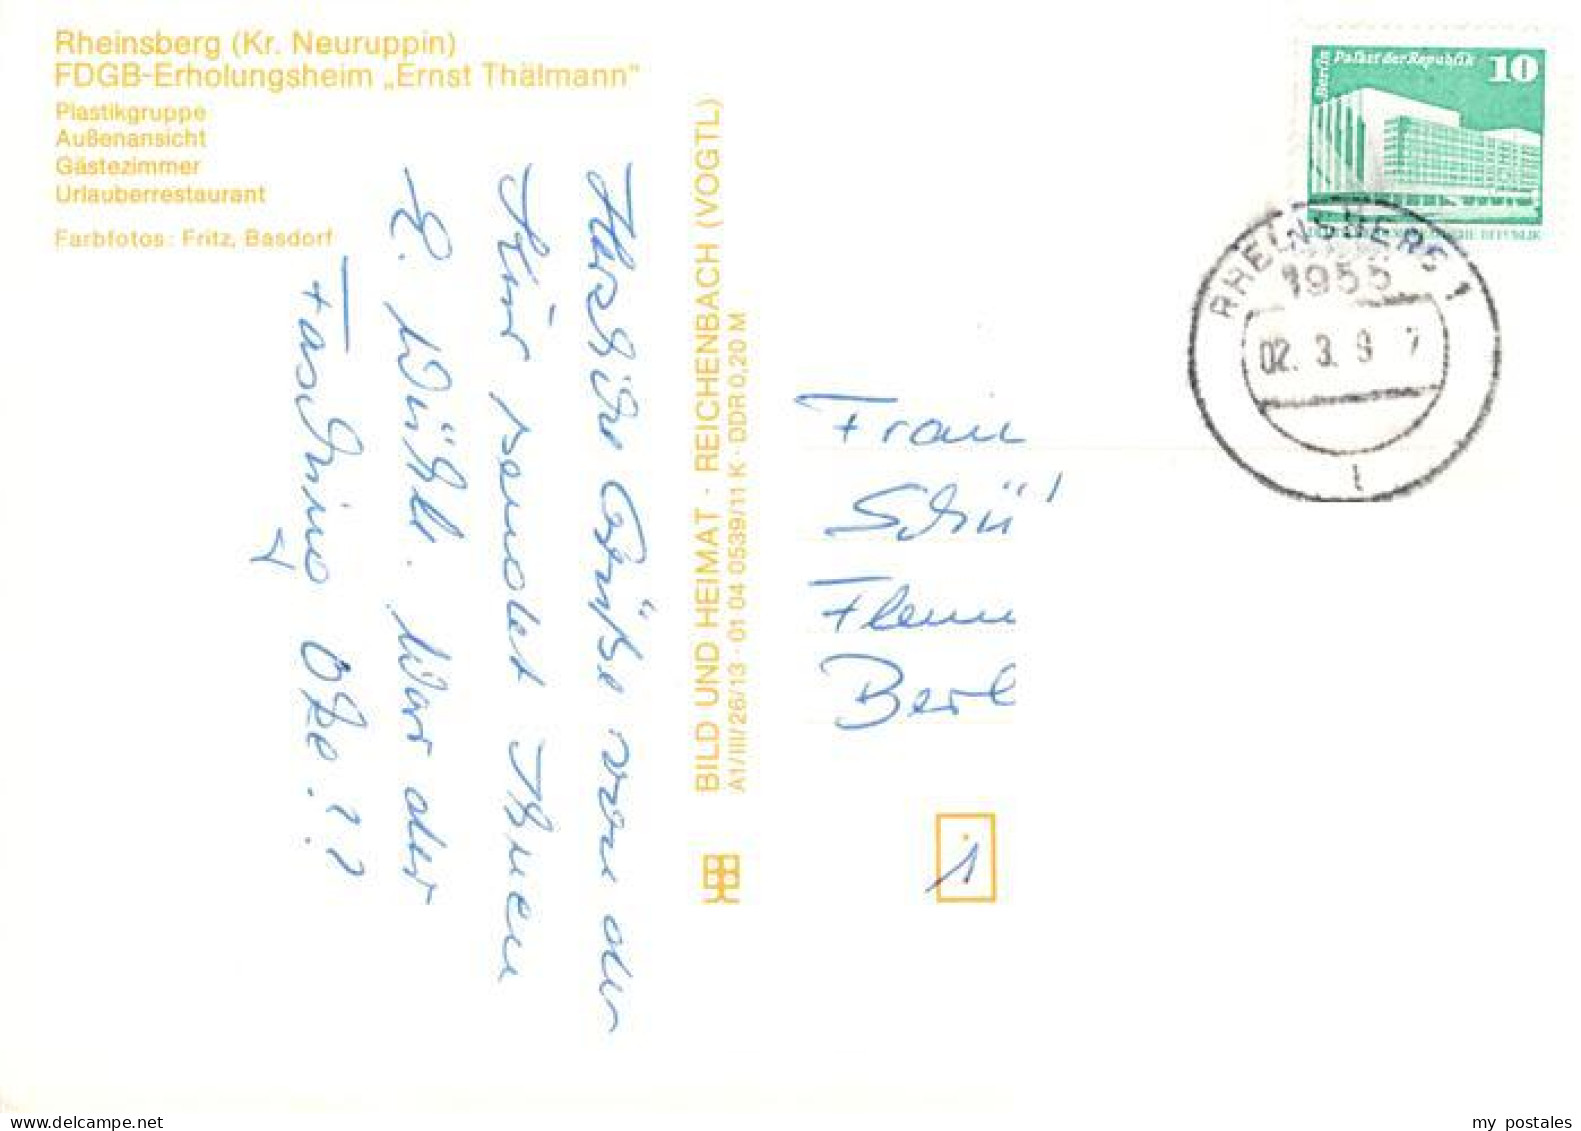 Rheinsberg (Kr. Neuruppin)
FDGB-Erholungsheim „Ernst Thälmann"
Plastikgruppe
Außenansicht
Gästezimmer
Urlauberrestaurant
Farbfotos: Fritz, Basdorf
Herzliche Grüße von der
Kur sendet Ihnen
E. War der
Fasching Oke.??
BILD UND HEIMAT · REICHENBACH (VOGTL)
A1/III/26/13 · 01 04 0539/11 K · DDR 0,20 M
Berlin Palast der Republik 10
RHEINSBERG 1
1955
02. 3. 9 7
Frau
Schü
Flem
Berl
1
my postales